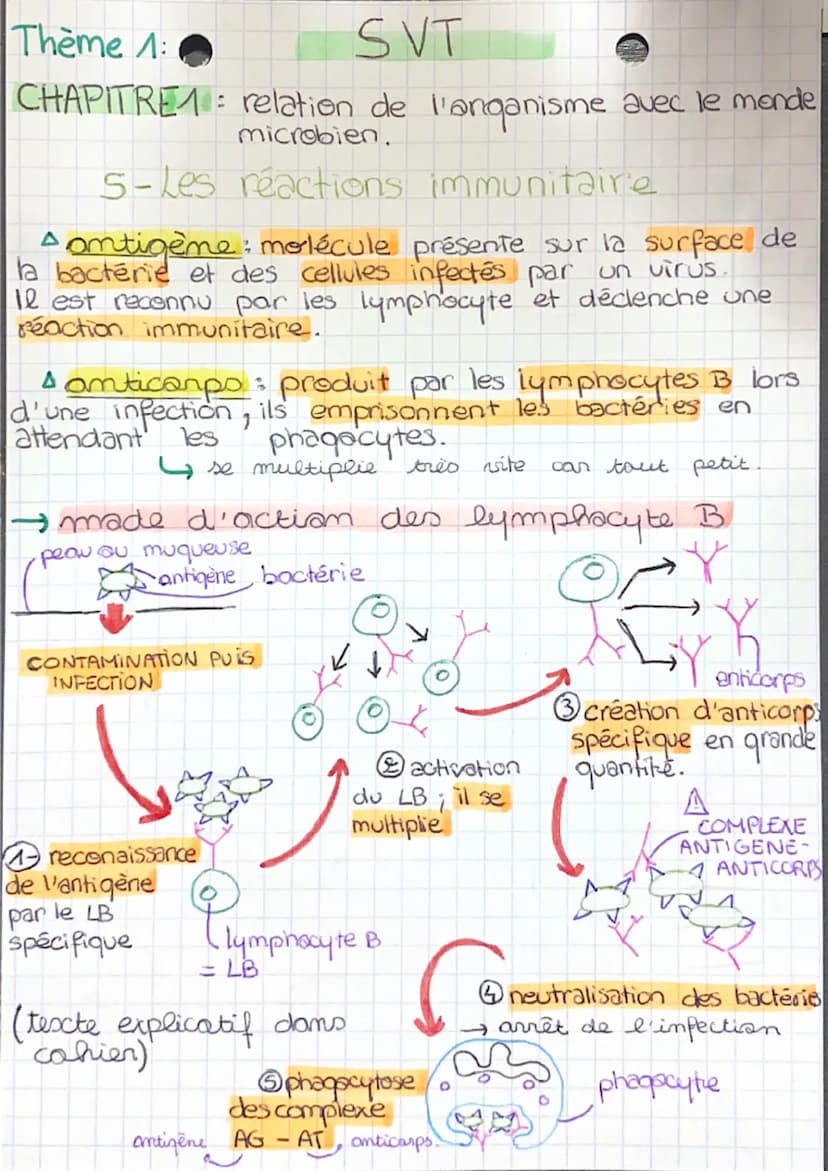 Thème 1:
SVT
CHAPITRE 1 : relation de l'organisme avec le monde
microbien.
5-Les réactions immunitaire
∆ antigène : molécule présente sur la surface de
la bactérie et des cellules infectés par un virus.
Il est reconnu par les lymphocyte et déclenche une
réaction immunitaire.
∆ anticorps : produit par les lymphocytes B lors
d'une infection, ils emprisonnent les bactéries en
attendant les phagocytes.
↳ se multiplie très vite car tout petit.
→ mode d'action des lymphocyte B
peau ou muqueuse
antigène bactérie
CONTAMINATION PUIS
INFECTION
anticorps
③ création d'anticorps
spécifique en grande
quantité.
② activation
du LB ; il se
multiplie
⚠
COMPLEXE
ANTIGENE-
ANTICORPS
1- reconaissance
de l'antigène
par le LB
spécifique
lymphocyte B
= LB
④ neutralisation des bactérie
→ arrêt de l'infection
(texte explicatif dans
cahier)
⑤ phagocytose
des complexe
AG - AT
antigène
anticorps.
phagocyte